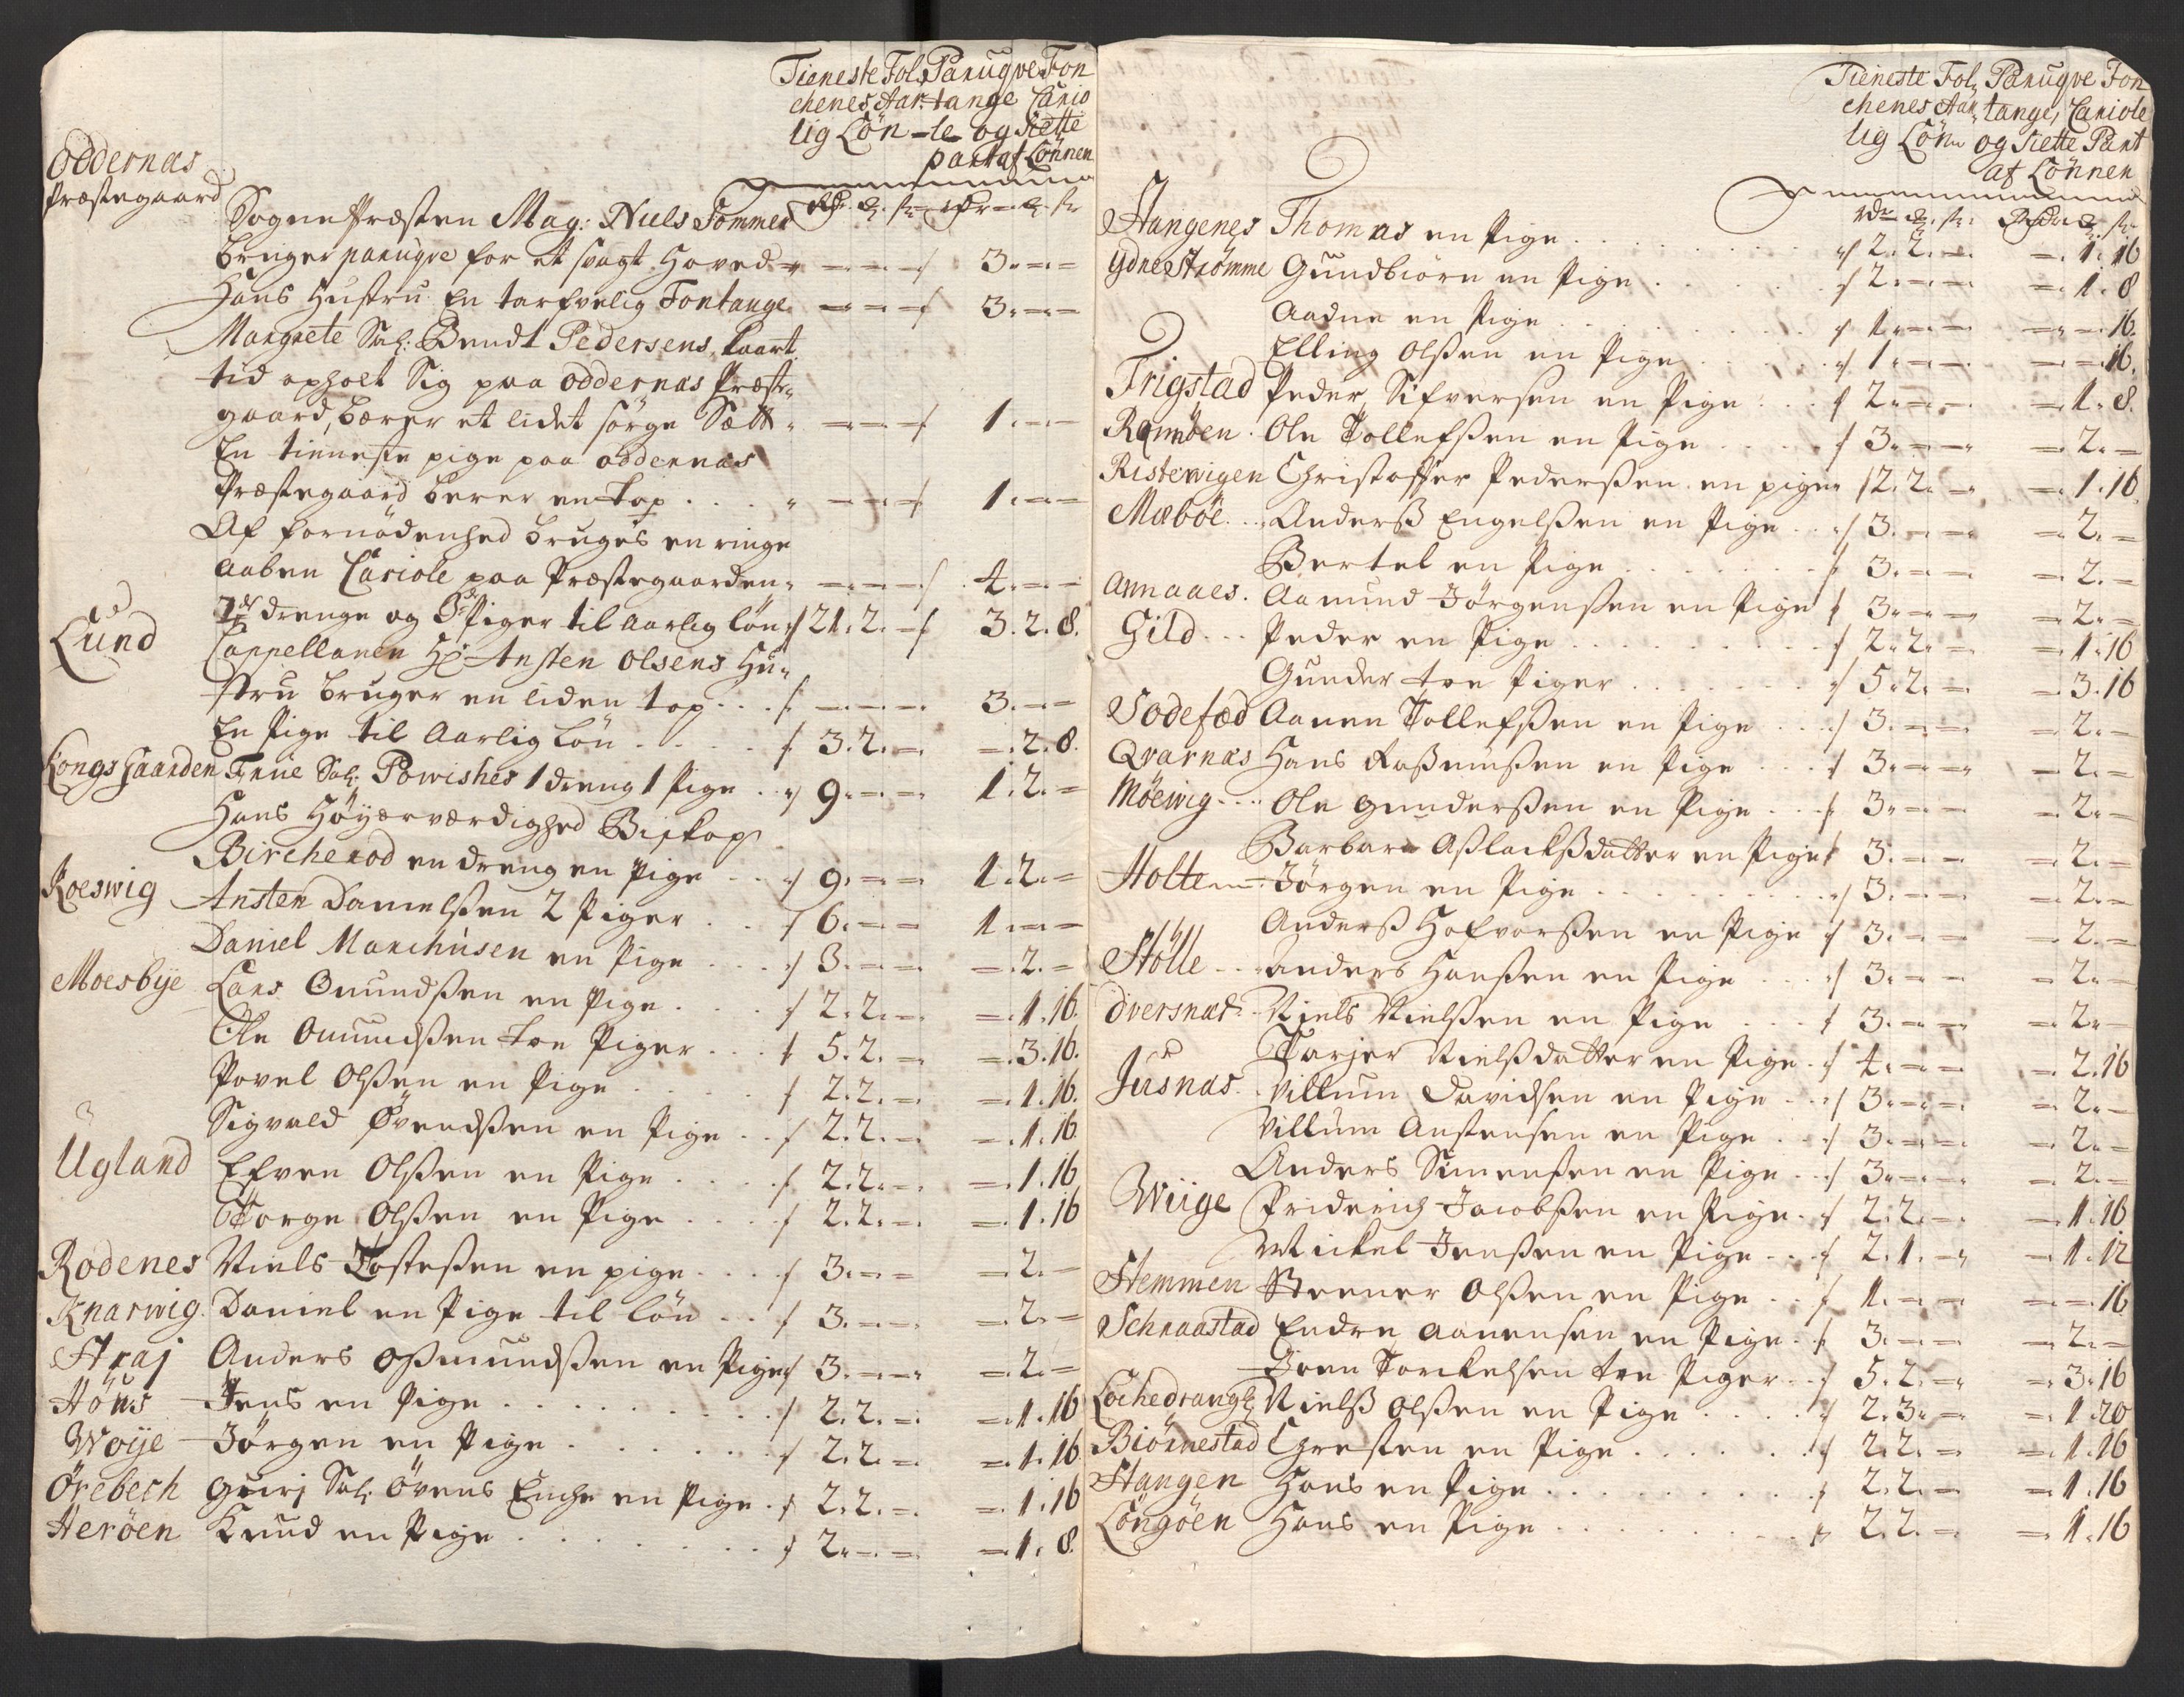 Tieneste Fol, Paruqve Fon
chenes Aar- tange Cario
lig Lön -le og Siette
part af Lönnen
Oddernæs
Præstegaard
Sogne Præsten Mag: Niels Tommes
bruger paruqve for et svagt Hoved 3.
Hans Hustru En tarfvelig Fontange 3.
Margrete Sal: Bendt Pedersens, kaart
tid opholt Sig paa oddernæs Præste
gaard, bærer et lidet sörge Sætt 1.
En tieneste pige paa oddernæs
Præstegaard berer en top 1.
Af fornödenhed bruges en ringe
aaben Cariole paa Præstegaarden 4.
drenge og Piger til aarlig lön 21. 2. 3. 2. 8.
Lund Cappellanen Hr Ansten Olsens Hu-
stru bruger en liden top 3.
En Pige til Aarlig lön 3. 2. 2. 8.
Kongs Gaarden Frue Sal: Powishes 1 dreng 1 Pige 9. 1. 2.
Hans Höyærværdighed Biskop
Bircherod en dreng en Pige 9. 1. 2.
Roeswig Ansten Danielßen 2 Piger 6. 1.
Daniel Marchusen en Pige 3. 2.
Moesbye Lars Omundßen en Pige 2. 2. 1. 16.
Ole Omundßen toe Piger 5. 2. 3. 16.
Povel Olßen en Pige 2. 2. 1. 16.
Sigvald Övendßen en Pige 2. 2. 1. 16
Ugland Efven Olßen en Pige 2. 2. 1. 16
Torge Olßen en Pige 2. 2. 1. 16
Rodenes Niels Tosteßen en pige 3. 2.
Knarwig Daniel en Pige til lön 3. 2.
Straj Anders Oßmundßen en Pige 3. 2.
Höns Jens en Pige 2. 2. 1. 16
Woije Jörgen en Pige 2. 2. 1. 16
Örebech Gurj Sal: Övens Enche en Pige 2. 2. 1. 16
Heröen Knud en Pige 2. 1. 8.
Tieneste Fol, Paruqve Fon
chenes Aar, tange, Cariole
lig Lön og Siette Part
af Lönnen
Stangenes Thomas en Pige 2. 2. 1. 16
Ydne Strömme Gundbiörn en Pige 2. 1. 8
Aadne en Pige 1. 16.
Elling Olßen en Pige 1. 16.
Frigstad Peder Sifversen en Pige 2. 1. 8.
Ramöen Ole Tollefßen en Pige 3. 2.
Ristewigen Christoffer Pederßen en pige 2. 2. 1. 16.
Mæböe Anderß Engelßen en Pige 3. 2.
Bertel en Pige 3. 2.
Annaaes Aamund Jörgenßen en Pige 3. 2.
Gild Peder en Pige 2. 2. 1. 16
Gunder toe Piger 5. 2. 3. 16
Sodefæd Aanen Tollefßen en Pige 3. 2.
Qvarnæs Hans Raßmußen en Pige 3. 2.
Möewig Ole Gunderßen en Pige 3. 2.
Barbara Aßlackßdatter en Pige 3. 2.
Holte Jörgen en Pige 3. 2.
Anderß Hofvorßen en Pige 3. 2.
Stölle Anders Hanßen en Pige 3. 2.
Dversnæs Niels Nielßen en Pige 3. 2.
Tarjer Nielßdatter en Pige 4. 2. 16
Jusnæs Villum Davidsen en Pige 3. 2.
Villum Anstensen en Pige 3. 2.
Anders Simenßen en Pige 3. 2.
Wiige Friderich Jacobßen en Pige 2. 2. 1. 16
Mickel Jenßen en Pige 2. 1. 1. 12
Stemmen Steener Olßen en Pige 1. 16
Schraastad Endre Aanensen en Pige 3. 2.
Joen Torckelsen toe Piger 5. 2. 3. 16
Lochedrangs Nielß Olßen en Pige 2. 3. 1. 20
Biörnestad Chresten en Pige 2. 2. 1. 16
Stangen Hans en Pige 2. 2. 1. 16
Löngöen Hans en Pige 2. 2. 1. 16